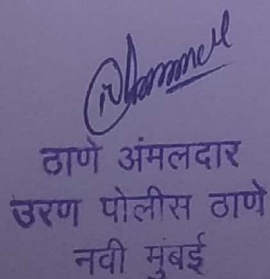 ठाणे अंमलदार
उरण पोलीस ठाणे
नवी मुंबई